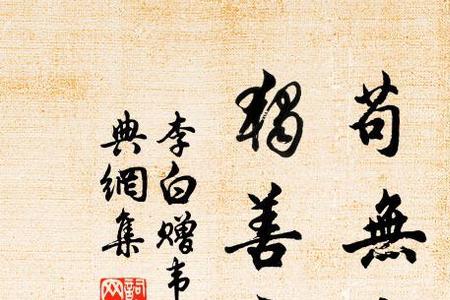 苟無
獨善
李白贈韦
典網集
詞
网